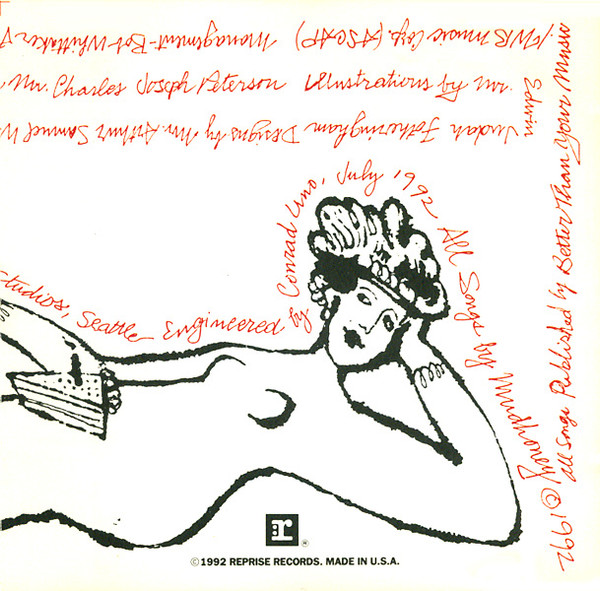 /WB Music Corp. (ASCAP) Management-Bob Whittaker
Mr. Charles Joseph Peterson Illustrations by Mr.
Edwin
Judah Fotheringham Designs by Mr. Arthur Samuel W
Studios, Seattle Engineered by Conrad Uno, July 1992 All Songs by Mudhoney @1992
All Songs Published by Better Than Your Music
r
®
©1992 REPRISE RECORDS. MADE IN U.S.A.